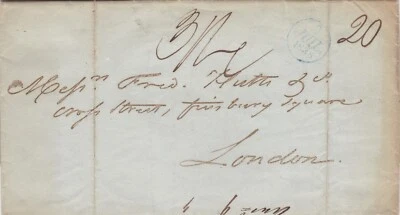 20
Messrs Fred. Huth & Co
Cross Street, finsbury Square
London.